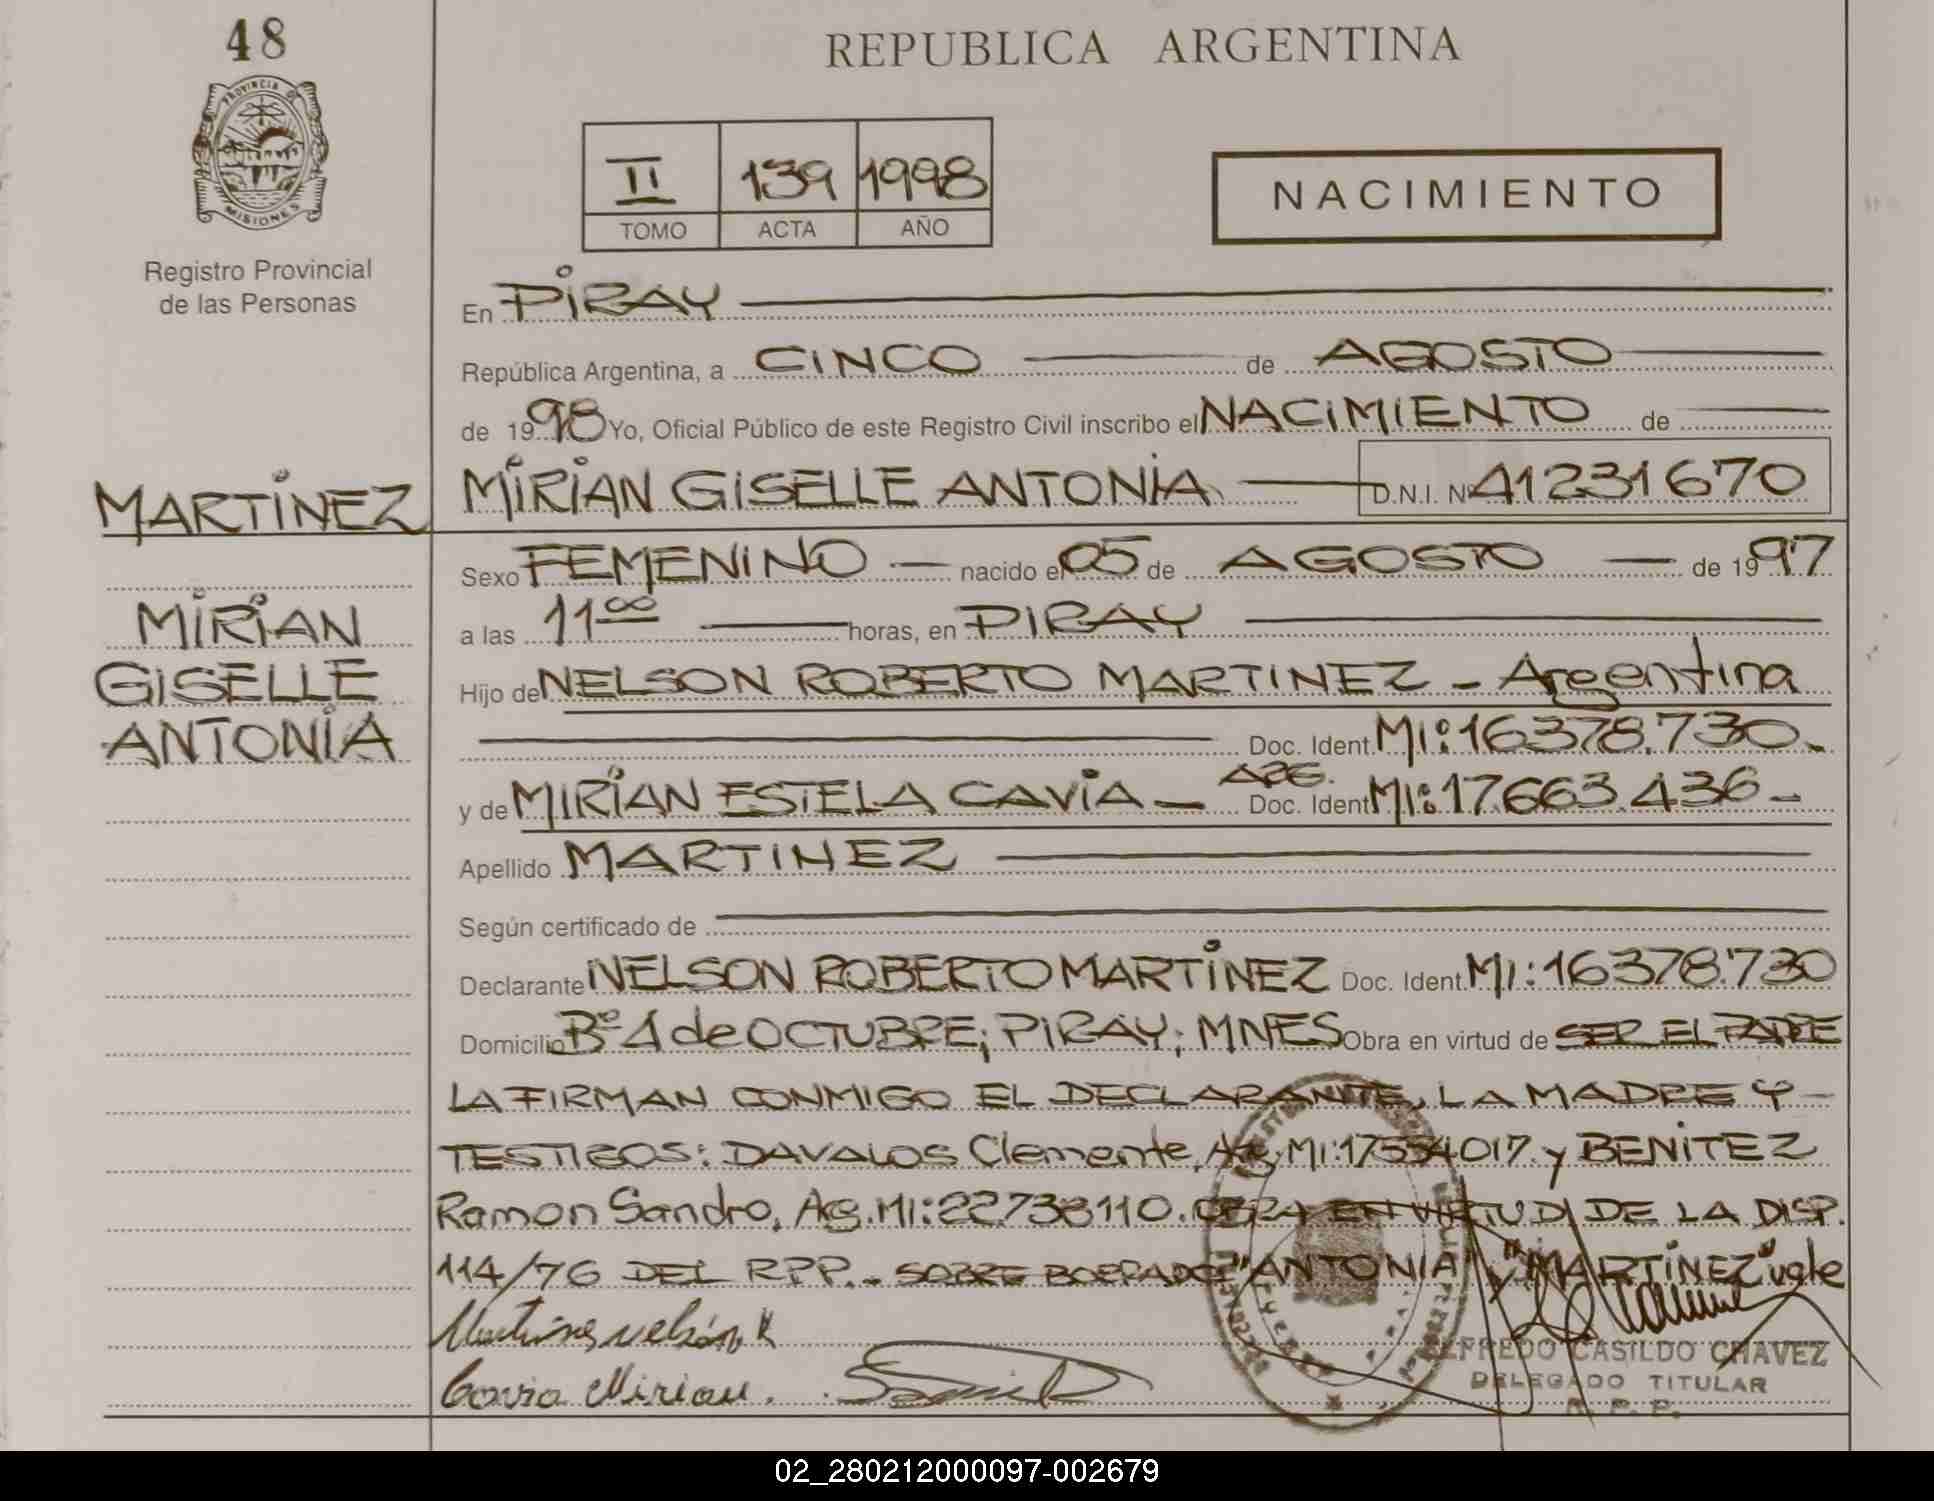 48
REPUBLICA ARGENTINA
PROVINCIA DE
MISIONES
Registro Provincial
de las Personas
II 139 1998
TOMO ACTA AÑO
NACIMIENTO
En PIRAY
República Argentina, a CINCO de AGOSTO
de 1998 Yo, Oficial Público de este Registro Civil inscribo el NACIMIENTO de
MARTINEZ
MIRIAN GISELLE ANTONIA D.N.I. Nº 41231670
MIRIAN
GISELLE
ANTONIA
Sexo FEMENINO nacido el 05 de AGOSTO de 1997
a las 11 00 horas, en PIRAY
Hijo de NELSON ROBERTO MARTINEZ - Argentina
Doc. Ident. MI: 16378.730.
y de MIRIAN ESTELA CAVIA - ARG. Doc. Ident. MI: 17.663.436 -
Apellido MARTINEZ
Según certificado de
Declarante NELSON ROBERTO MARTINEZ Doc. Ident. MI: 16378.730
Domicilio Bº 1 de OCTUBRE; PIRAY; MNES Obra en virtud de SER EL PADRE
LA FIRMAN CONMIGO EL DECLARANTE, LA MADRE Y
TESTIGOS: DAVALOS Clemente, Arg. MI: 17554017. y BENITEZ
Ramon Sandro, Arg. MI: 22.738110. OBRA EN VIRTUD DE LA DISP.
114/76 DEL RPP. - SOBRE BORRADO: "ANTONIA" y "MARTINEZ" vale
Martinez nelson R
Cavia Mirian.
ALFREDO CASILDO CHAVEZ
DELEGADO TITULAR
R. P. P.
02_280212000097-002679